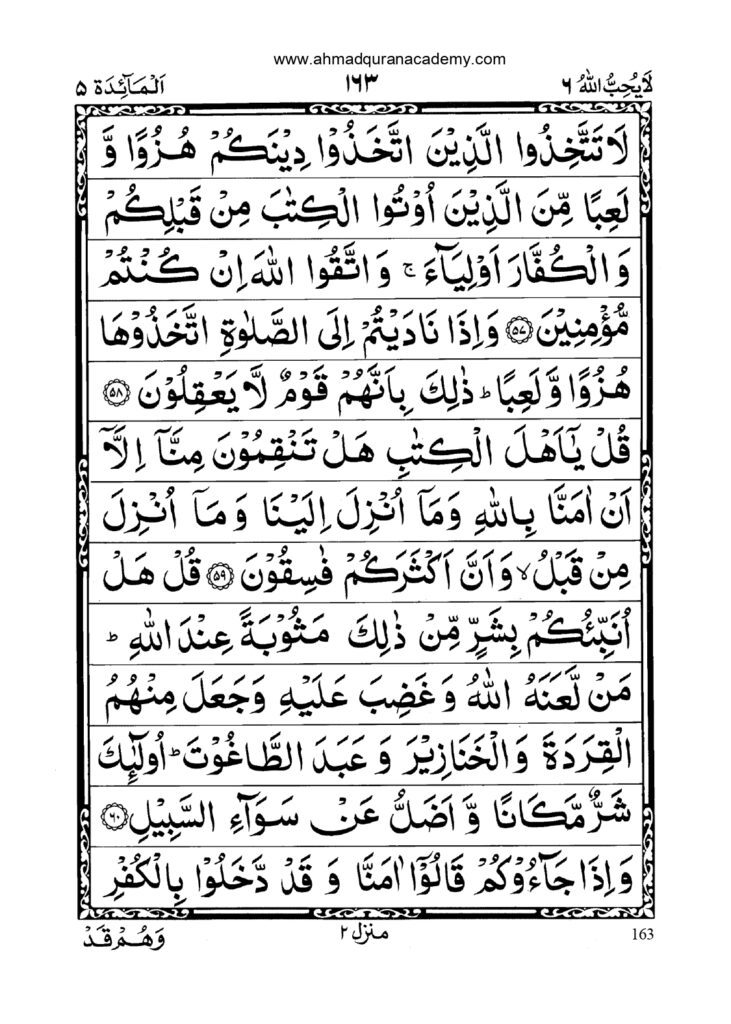 www.ahmadquranacademy.com
لَا يُحِبُّ اللّٰهُ ٦
١٦٣
اَلْمَآئِدَة ٥
لَا تَتَّخِذُوا الَّذِيْنَ اتَّخَذُوْا دِيْنَكُمْ هُزُوًا وَّ
لَعِبًا مِّنَ الَّذِيْنَ اُوْتُوا الْكِتٰبَ مِنْ قَبْلِكُمْ
وَالْكُفَّارَ اَوْلِيَآءَ ۚ وَاتَّقُوا اللّٰهَ اِنْ كُنْتُمْ
مُّؤْمِنِيْنَ ﴿٥٧﴾ وَاِذَا نَادَيْتُمْ اِلَى الصَّلٰوةِ اتَّخَذُوْهَا
هُزُوًا وَّلَعِبًا ؕ ذٰلِكَ بِاَنَّهُمْ قَوْمٌ لَّا يَعْقِلُوْنَ ﴿٥٨﴾
قُلْ يٰۤاَهْلَ الْكِتٰبِ هَلْ تَنْقِمُوْنَ مِنَّاۤ اِلَّاۤ
اَنْ اٰمَنَّا بِاللّٰهِ وَمَاۤ اُنْزِلَ اِلَيْنَا وَمَاۤ اُنْزِلَ
مِنْ قَبْلُ ۙ وَاَنَّ اَكْثَرَكُمْ فٰسِقُوْنَ ﴿٥٩﴾ قُلْ هَلْ
اُنَبِّئُكُمْ بِشَرٍّ مِّنْ ذٰلِكَ مَثُوْبَةً عِنْدَ اللّٰهِ ؕ
مَنْ لَّعَنَهُ اللّٰهُ وَغَضِبَ عَلَيْهِ وَجَعَلَ مِنْهُمُ
الْقِرَدَةَ وَالْخَنَازِيْرَ وَعَبَدَ الطَّاغُوْتَ ؕ اُولٰٓئِكَ
شَرٌّ مَّكَانًا وَّاَضَلُّ عَنْ سَوَآءِ السَّبِيْلِ ﴿٦٠﴾
وَاِذَا جَآءُوْكُمْ قَالُوْۤا اٰمَنَّا وَقَدْ دَّخَلُوْا بِالْكُفْرِ
163
منزل ٢
وَهُمْ قَدْ